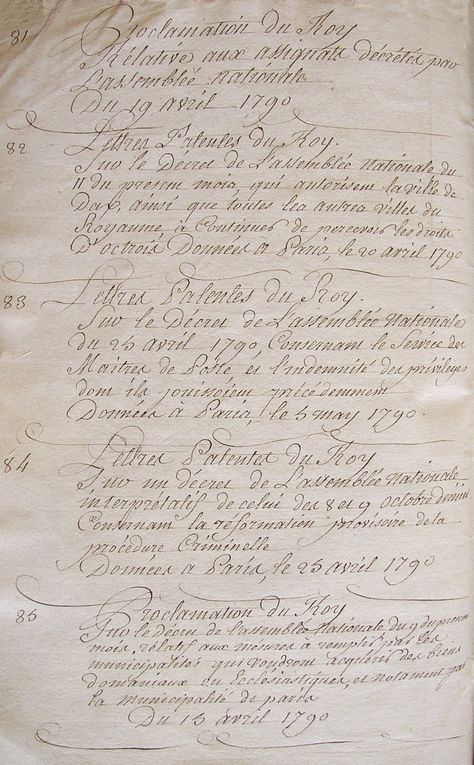 81 Proclamation du Roy
Rélative aux assignats décrétés par
L'assemblée nationale
Du 19 avril 1790
82 Lettres Patentes du Roy.
Sur le Décret de L'assemblée Nationale du
11 du present mois, qui autorisent la ville de
Dax, ainsi que toutes les autres villes du
Royaume, à Continuer de percevoir les droits
D'octrois Données a Paris, le 20 avril 1790
83 Lettres Patentes du Roy.
Sur le Décret de L'assemblée Nationale
du 25 avril 1790, Consernant le Service des
Maitres de Poste et l'indemnité des privileges
dont ils jouissoient précédemment
Données a Paris, le 5 may 1790.
84 Lettres Patentes du Roy
Sur un decret de L'assemblée Nationale
interprétatif de celui des 8 et 9 Octobre
Consernant la réformation provisoire de la
procédure Criminelle
Données a Paris, le 25 avril 1790
85 Proclamation du Roy
Sur le Décret de l'assemblée Nationale du 9 du present
mois, rélatif aux mesures a remplir par les
municipalités qui voudront acquérir des biens
domaniaux ou Ecclésiastiques, et notament par
la municipalité de paris
Du 15 avril 1790